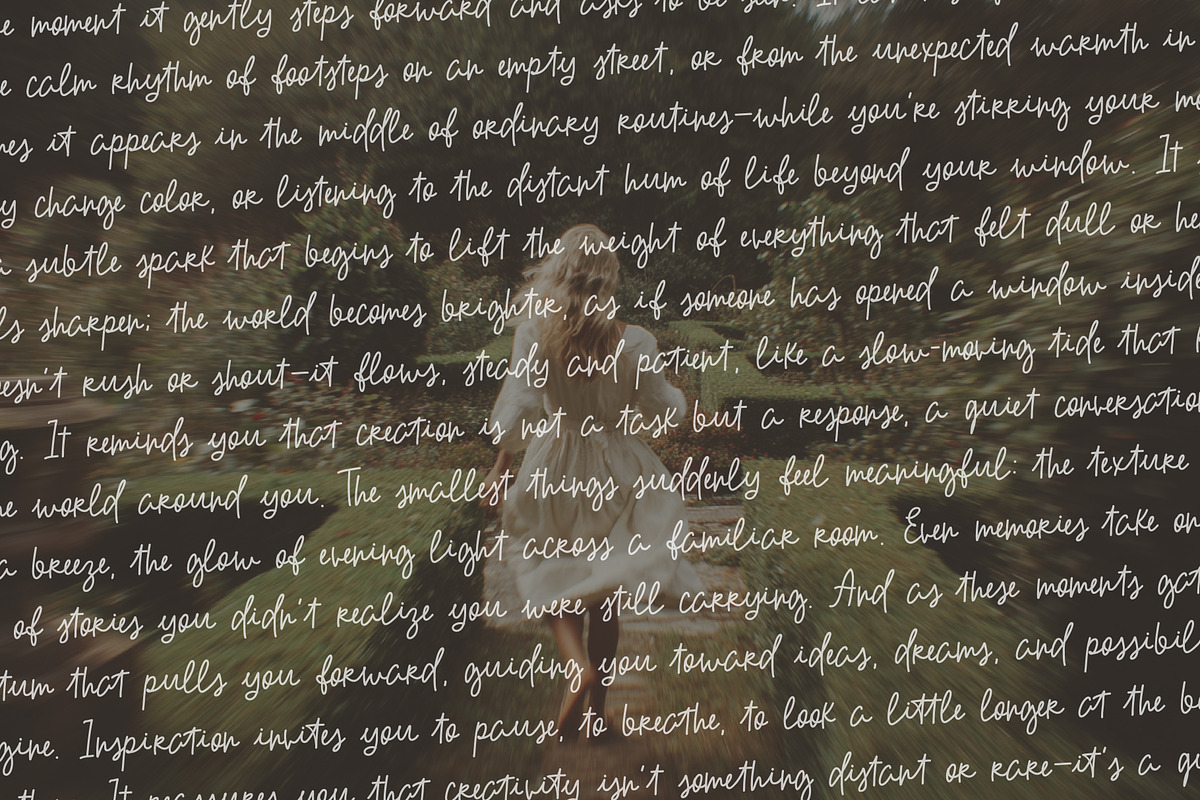 e moment it gently steps forward and asks to be
e calm rhythm of footsteps on an empty street, or from the unexpected warmth in
it appears in the middle of ordinary routines—while you're stirring your
y change color, or listening to the distant hum of life beyond your window. It
a subtle spark that begins to lift the weight of everything that felt dull or
ls sharpen; the world becomes brighter, as if someone has opened a window inside
esn't rush or shout—it flows, steady and patient, like a slow-moving tide that
g. It reminds you that creation is not a task but a response, a quiet conversatio
e world around you. The smallest things suddenly feel meaningful: the texture
a breeze, the glow of evening light across a familiar room. Even memories take on
of stories you didn't realize you were still carrying. And as these moments gat
tum that pulls you forward, guiding you toward ideas, dreams, and possibil
gine. Inspiration invites you to pause, to breathe, to look a little longer at the b
It reassures you that creativity isn't something distant or rare—it's a